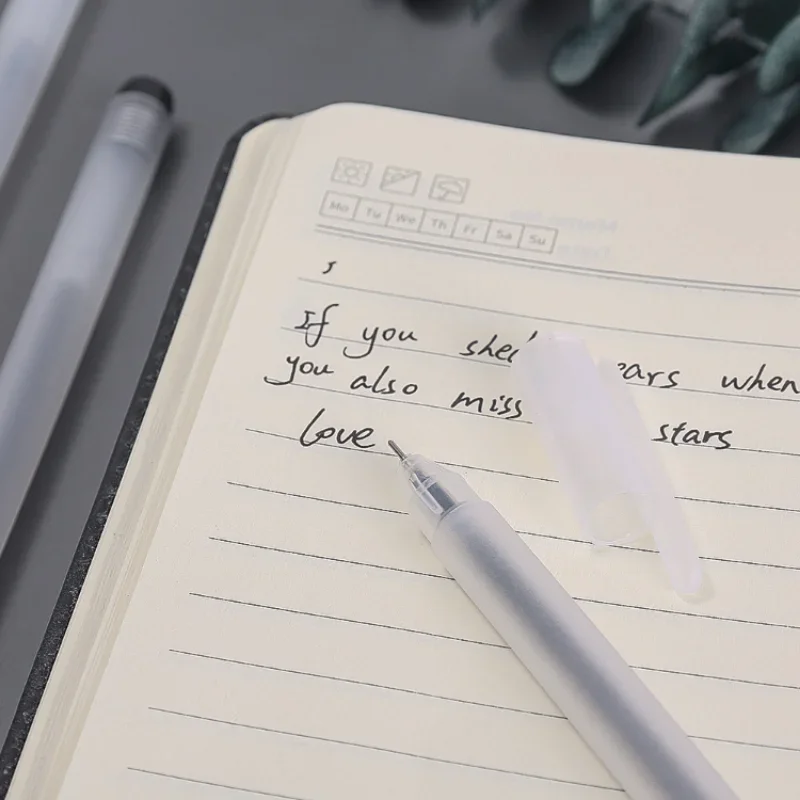 Mo Tu We Th Fr Sa Su
If you shed ears when
you also miss stars
love